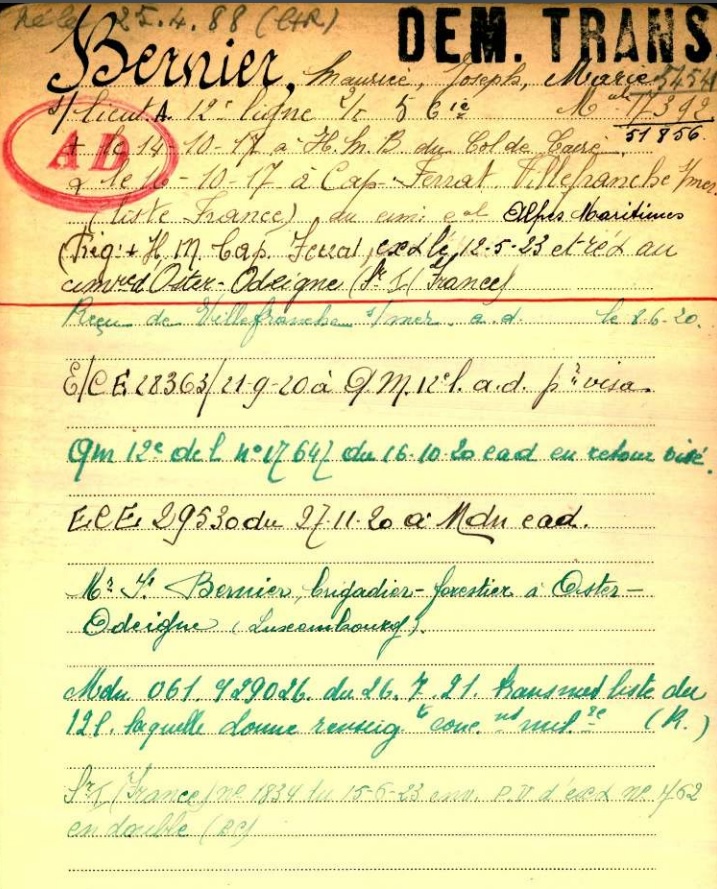 Né le 25.4.88 (CTR)
DEM. TRANS
Bernier, Maurice, Joseph, Marie 54541
s/lieut A. 12e ligne 5 Cie Mle 17392
51856
AD
+ le 14-10-17 à H.M.B du Col de Caire
le 16-10-17 à Cap-Ferrat Villefranche s/mer
(liste France) du cim Alpes Maritimes
(Rig: + H.M. Cap. Ferrat, exd le 12-5-23 et réd au
d'Oster-Odeigne (Sr (France)
Reçu de Villefranche s/mer a.d. le 8-6-20.
E/CE 28363/21-9-20 à QM.12 l. a.d. pr visa.
QM 12e de l n° 17647 du 16-10-20 cad en retour visé.
E.C.E. 29530 du 27-11-20 à Mdn cad.
Mr Bernier, brigadier-forestier à Oster-
Odeigne (Luxembourg).
Mdn 061.929026. du 26.7.21. transmet liste du
12 l. laquelle donne renseig ts conc. nt mil. re (R.)
(France) n° 1834 du 15-6-23 env. P.V d'exd n° 762
en double